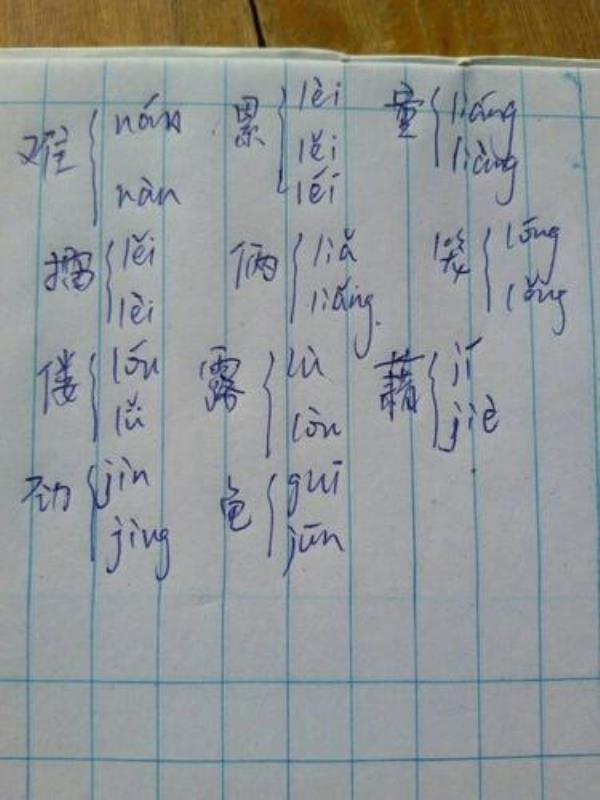 难 nán nàn 累 lèi lěi léi 量 liáng liàng
擂 lěi lèi 俩 liǎ liǎng 笼 lóng lǒng
偻 lóu lǚ 露 lù lòu 藉 jí jiè
劲 jìn jìng 龟 guī jūn